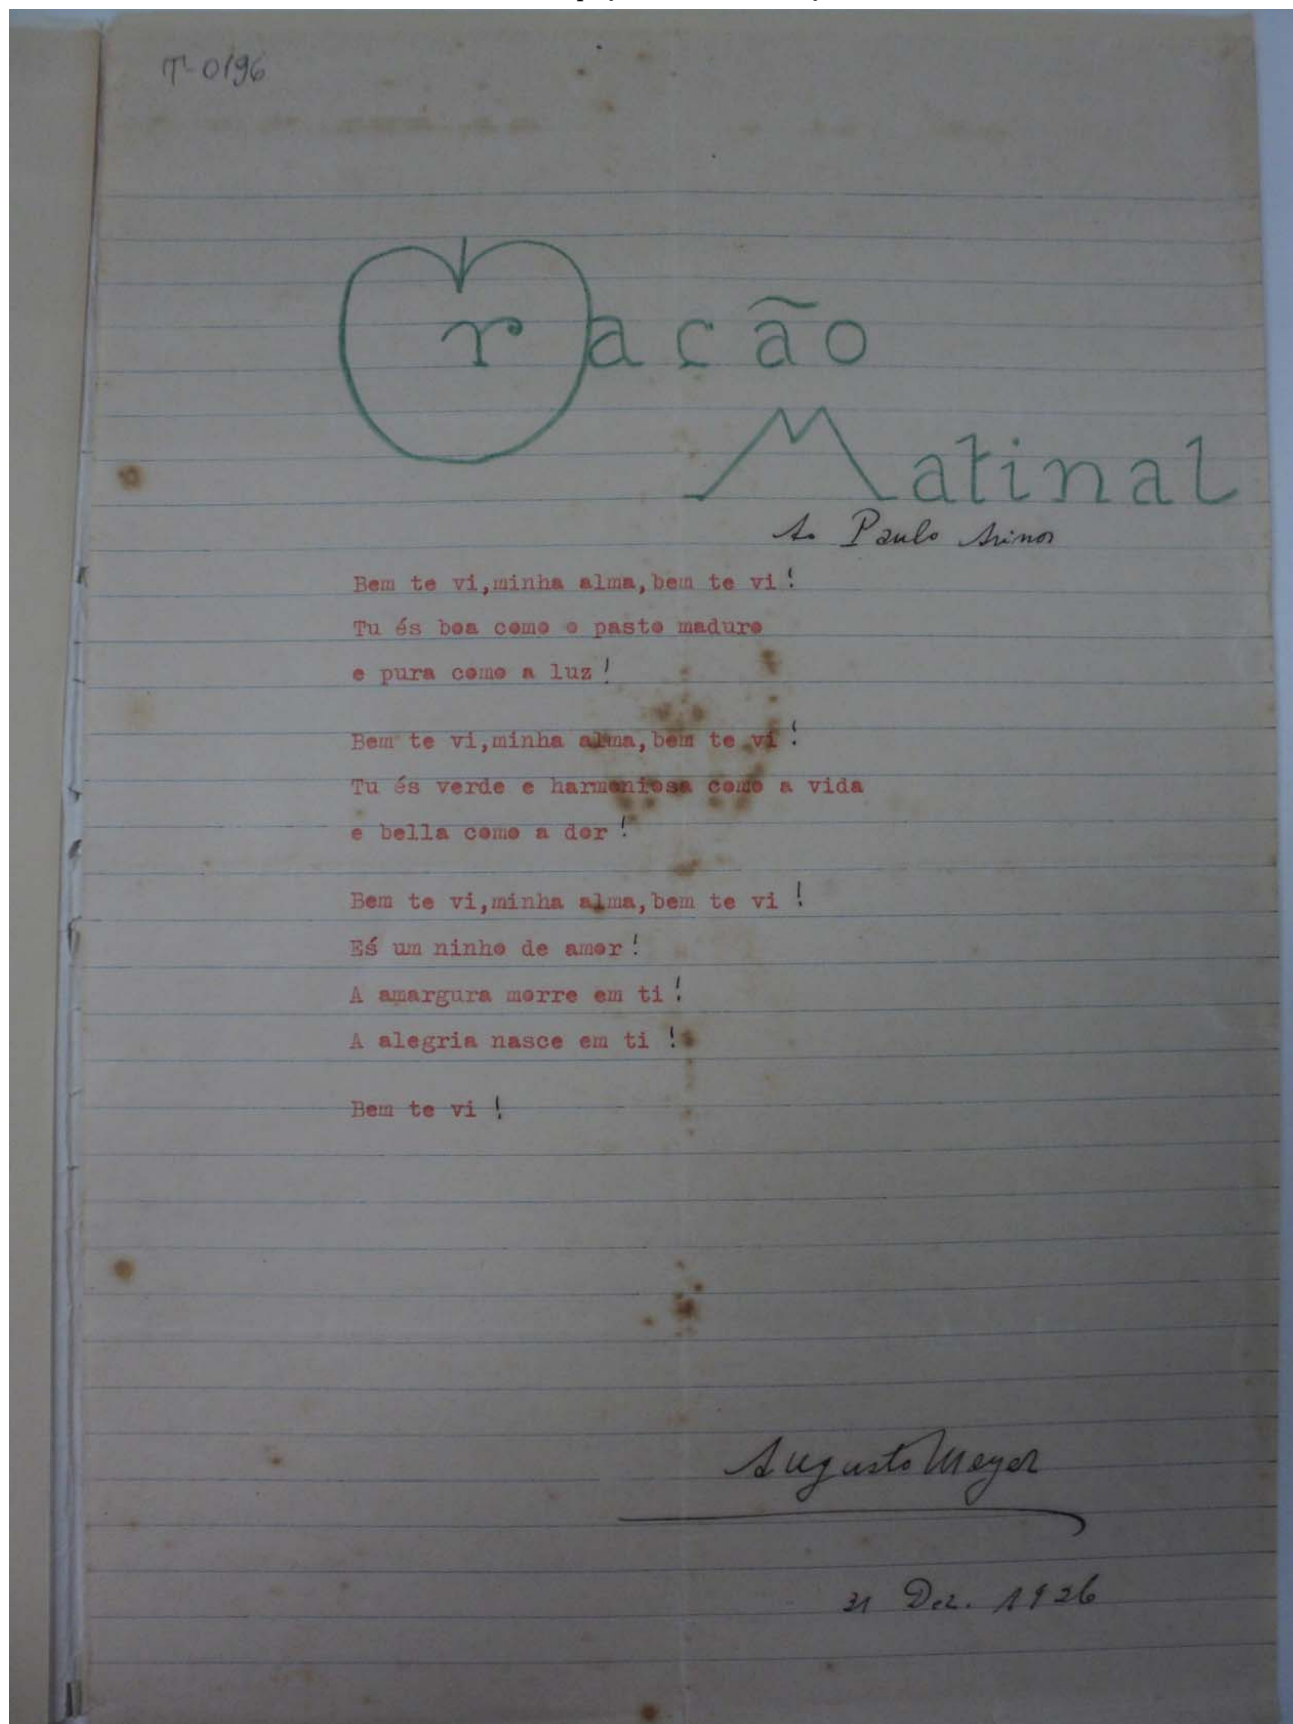 T-0196
Oração
Matinal
Ao Paulo Arinos
Bem te vi,minha alma,bem te vi!
Tu és boa como o pasto maduro
e pura como a luz!
Bem te vi,minha alma,bem te vi!
Tu és verde e harmoniosa como a vida
e bella como a dor!
Bem te vi,minha alma,bem te vi!
És um ninho de amor!
A amargura morre em ti!
A alegria nasce em ti!
Bem te vi!
Augusto Meyer
31 Dez. 1926